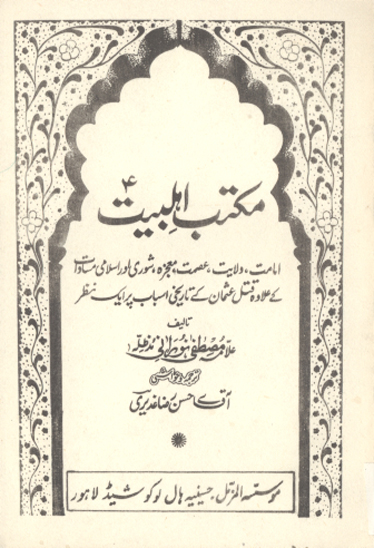 مکتب اہلبیت ۴
امامت، ولایت، عصمت، معجزہ، شوریٰ اور اسلامی مساوات
کے علاوہ قتل عثمان کے تاریخی اسباب پر ایک نظر
تالیف
علامہ مصطفیٰ نورانی مدظلہ
ترجمہ و حواشی
آقائے حسن رضا غدیری
موسسہ المزمل حسینیہ ہال لوکوشیڈ لاہور